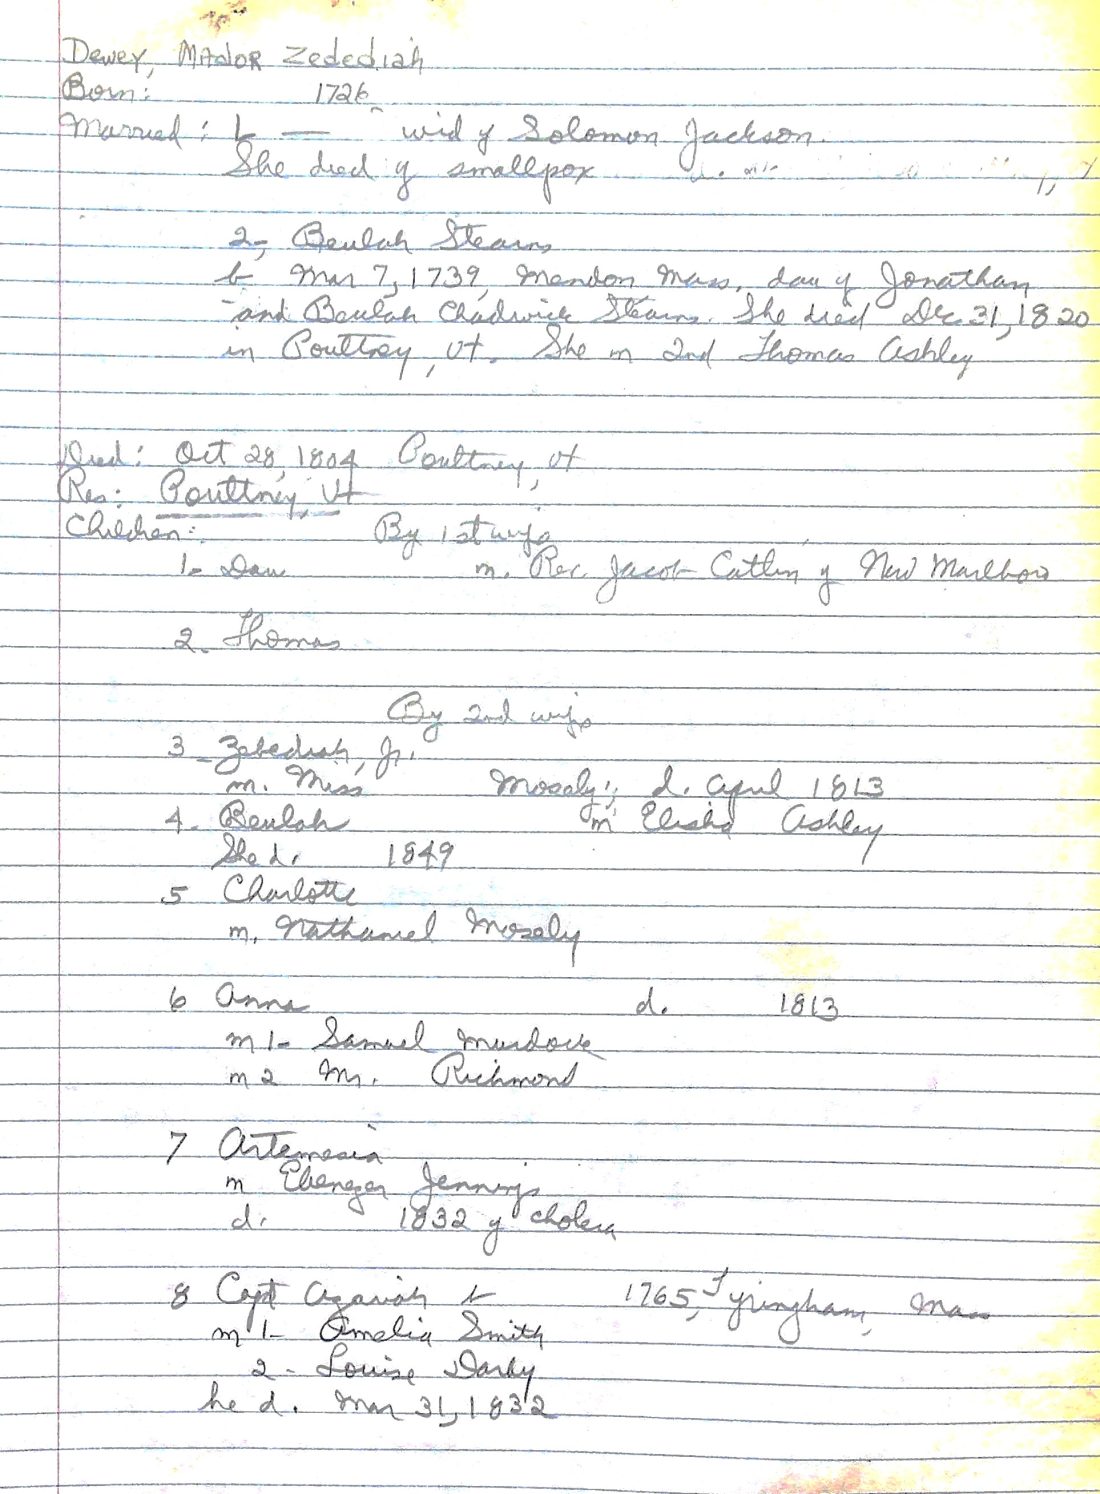 Dewey, Major Zedediah
Born: 1726
Married: 1- — wid of Solomon Jackson.
She died of smallpox
2, Beulah Stearns
b Mar 7, 1739, Mendon Mass, dau of Jonathan
and Beulah Chadwick Stearns. She died Dec. 31, 1820
in Poultney, Vt. She m 2nd Thomas Ashley
Died: Oct 28, 1804 Poultney, Vt
Res: Poultney, Vt
Children: By 1st wife
1- Dau m. Rev. Jacob Catlin of New Marlboro
2. Thomas
By 2nd wife
3 Zebediah, Jr.
m. Miss Mosely; d. April 1813
4. Beulah m Elisha Ashley
She d. 1849
5 Charlotte
m, Nathaniel Mosely
6 Anna d. 1813
m 1- Samuel Murdock
m 2 Mr. Richmond
7 Artemesia
m Ebenezer Jennings
d. 1832 of cholera
8 Capt Azariah b 1765, Tyringham, Mass
m 1- Amelia Smith
2 - Louise Darby
he d. Mar 31, 1832